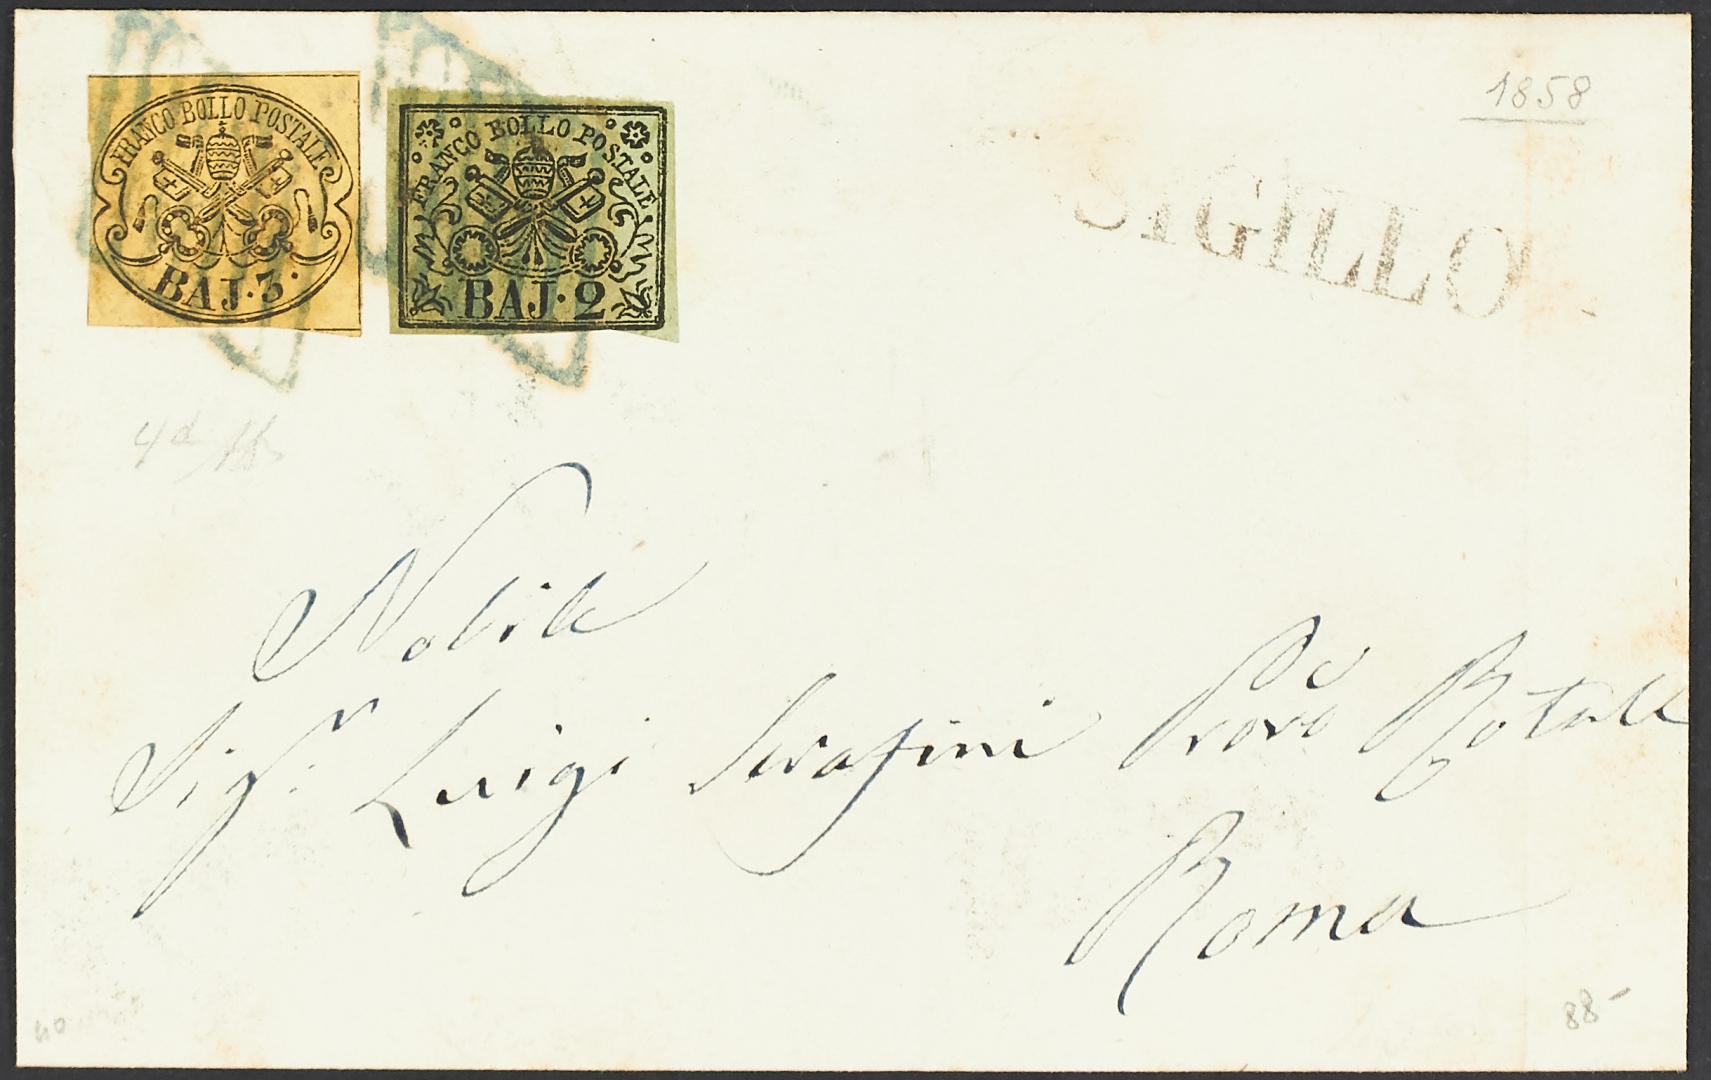 1858
FRANCO BOLLO POSTALE
BAJ·3·
FRANCO BOLLO POSTALE
BAJ·2
SIGILLO
Nobile
Sigr. Luigi Serafini Procre Rotale
Roma
40
88-